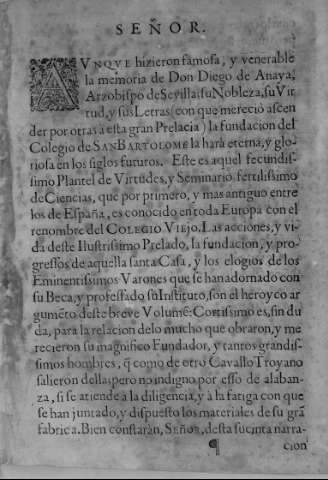 SEÑOR.
AVNQVE hizieron famosa, y venerable
la memoria de Don Diego de Anaya,
Arzobispo de Sevilla: su Nobleza, su Vir
tud, y sus Letras (con que mereciò ascen
der por otras à esta gran Prelacia) la fundacion del
Colegio de SAN BARTOLOME la harà eterna, y glo-
riosa en los siglos futuros. Este es aquel fecundis-
simo Plantel de Virtudes, y Seminario fertilissimo
de Ciencias, que por primero, y mas antiguo entre
los de España, es conocido en toda Europa con el
renombre del COLEGIO VIEJO. Las acciones, y vi-
da deste Ilustrissimo Prelado, la fundacion, y pro-
gressos de aquella santa Casa, y los elogios de los
Eminentissimos Varones que se han adornado con
su Beca, y professado su Instituto, son el heroyco ar
gumẽto deste breve Volumẽ: Cortissimo es, sin du
da, para la relacion de lo mucho que obraron, y me
recieron su magnifico Fundador, y tantos grandis-
simos hombres, q̃ como de otro Cavallo Troyano
salieron dèl: pero no indigno por esso de alaban-
za, si se atiende à la diligencia, y à la fatiga con que
se han juntado, y dispuesto los materiales de su grã
fabrica. Bien constaràn, SEÑOR, desta sucinta narra-
¶ cion